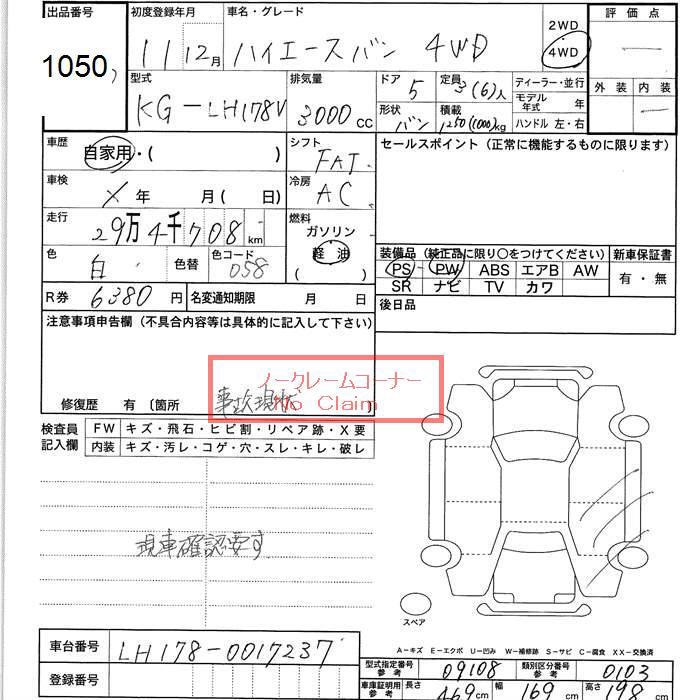 出品番号 初度登録年月 車名・グレード 2WD 評価点
1050 11 12月 ハイエースバン 4WD 4WD
型式 排気量 ドア 定員 ディーラー・並行 外装 内装
KG-LH178V 3000cc 5 3(6)人 モデル年式 年
形状 積載 ハンドル 左・右
バン 1250(1000)kg
車歴 シフト セールスポイント (正常に機能するものに限ります)
自家用・( ) FAT
車検 冷房
X 年 月( 日) AC
走行 燃料
29万4千708km ガソリン
色 色替 色コード 軽油 装備品 (純正品に限り○をつけてください) 新車保証書
白 058 ( ) PS PW ABS エアB AW 有・無
SR ナビ TV カワ
R券 6380円 名変通知期限 月 日 後日品
注意事項申告欄 (不具合内容等は具体的に記入して下さい)
イークレームコーナー
No Claim
修復歴 有 〔箇所 事故現状
検査員記入欄 FW キズ・飛石・ヒビ割・リペア跡・X要
内装 キズ・汚レ・コゲ・穴・スレ・キレ・破レ
現車確認要す
スペア
A-キズ E-エクボ U-凹み W-補修跡 S-サビ C-腐食 XX-交換済
車台番号 LH178-0017237
型式指定番号参考 09108 類別区分番号参考 0103
登録番号
車庫証明用参考 長さ 469cm 幅 169cm 高さ 198cm